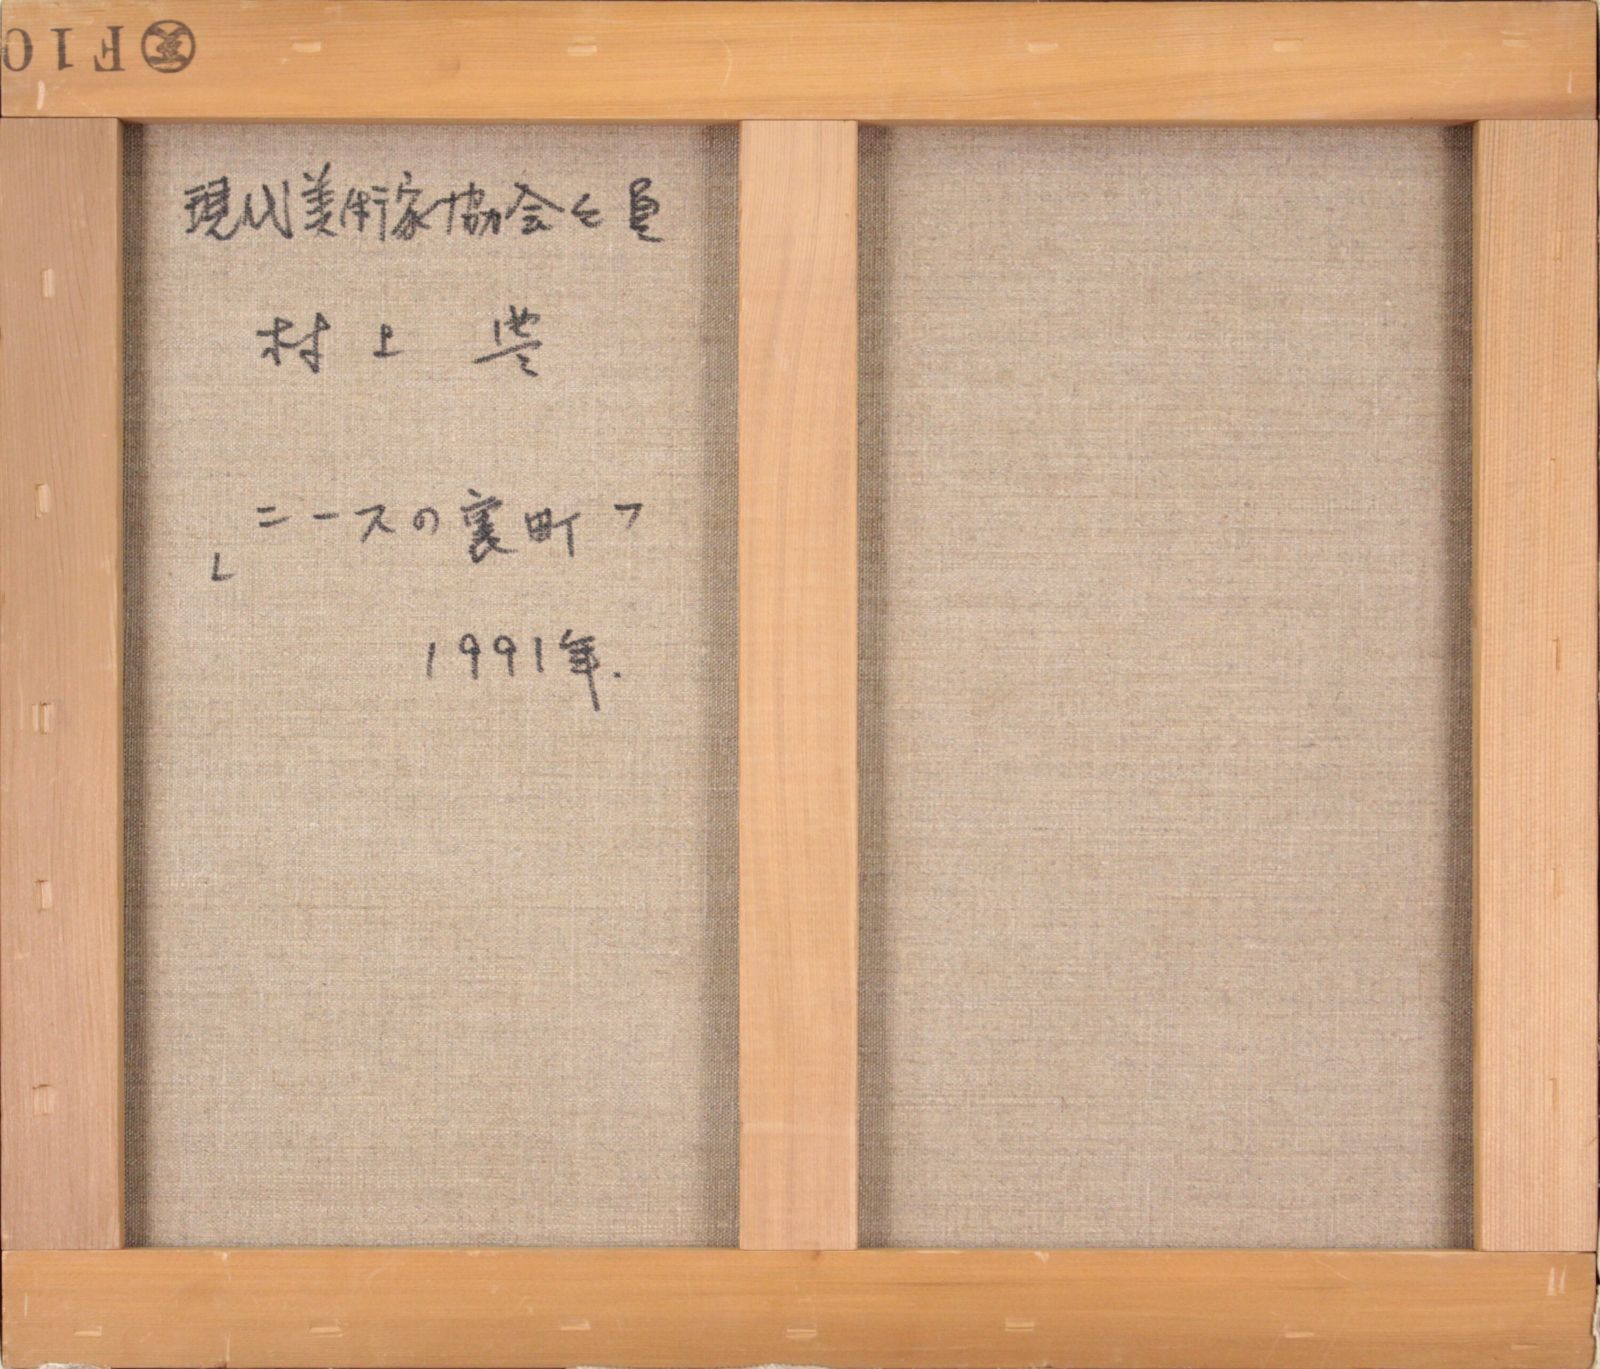 F10
現代美術家協会々員
村上 豊
「ニースの裏町」
1991年.